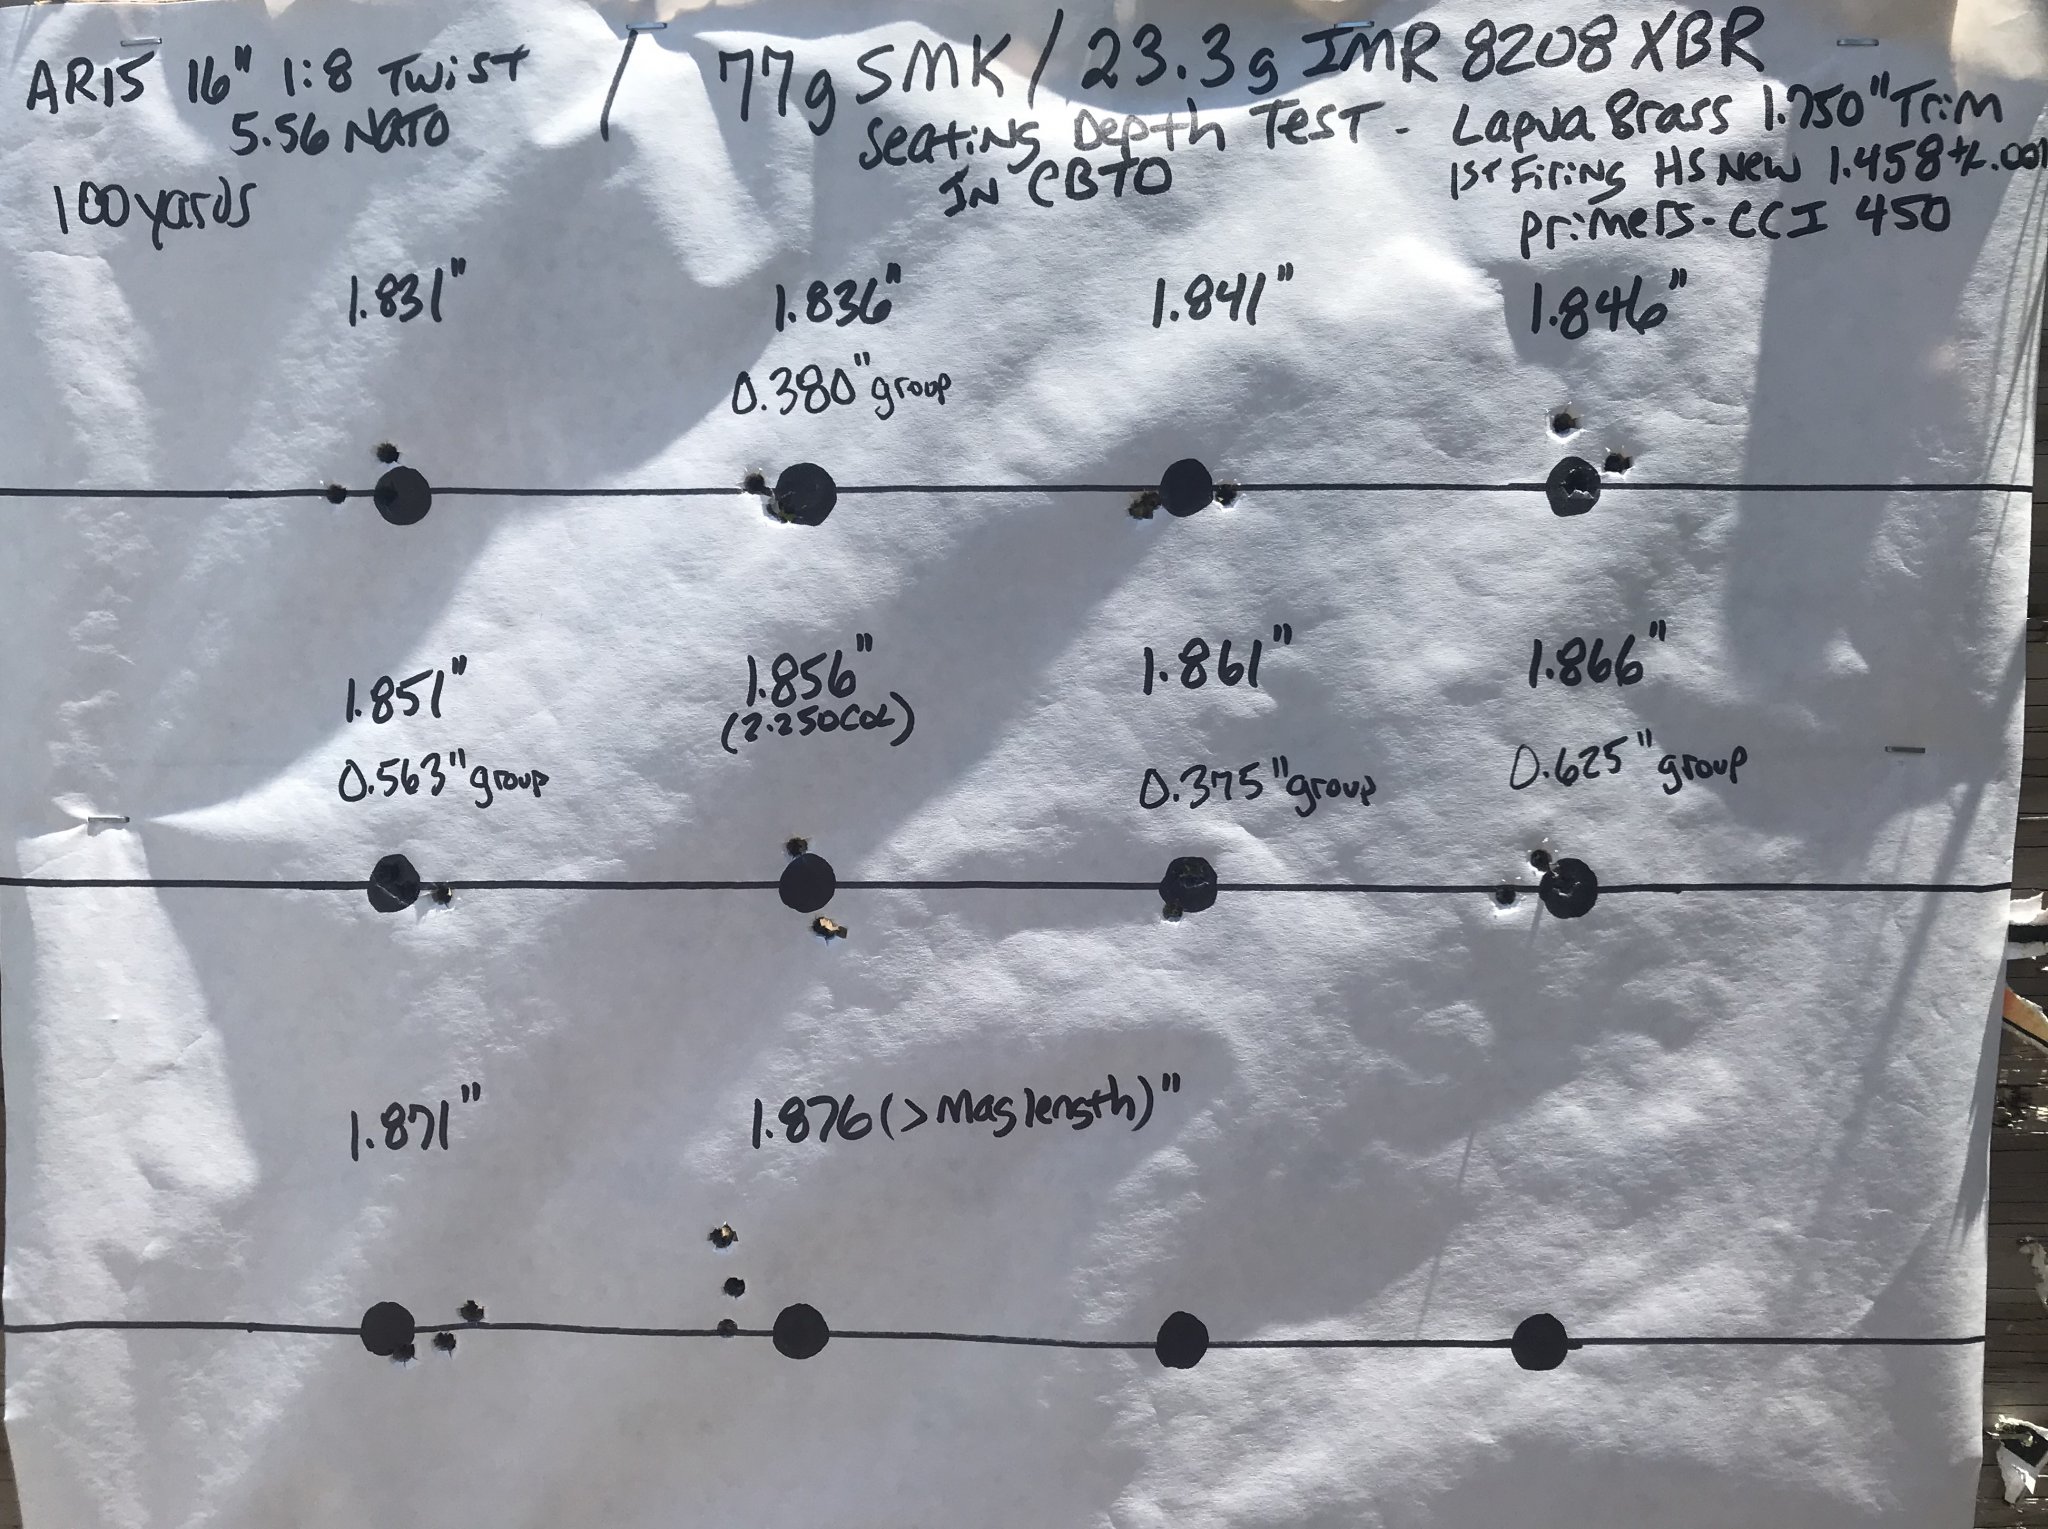 AR15 16" 1:8 Twist / 77g SMK / 23.3g IMR 8208 XBR
5.56 NATO
Seating Depth Test - Lapua Brass 1.750" Trim
In CBTO
1st Firing HS New 1.458 +/- .001
100 yards
primers - CCI 450
1.831" 1.836" 1.841" 1.846"
0.380" group
1.851" 1.856" 1.861" 1.866"
(2.250 COL)
0.563" group 0.375" group 0.625" group
1.871" 1.876 (> Mag length)"